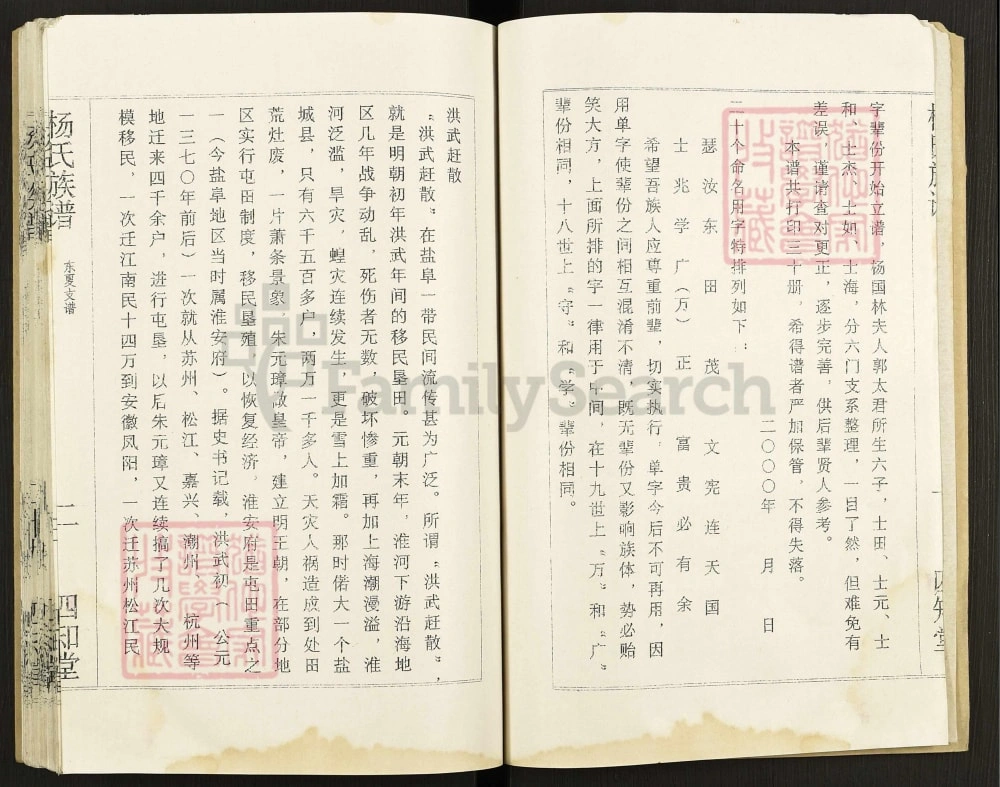 字辈份开始立谱，杨国林夫人郭太君所生六子，士田、士元、士
和、士杰、士如、士海，分六门支系整理，一目了然，但难免有
差误，谨请查对更正，逐步完善，供后辈贤人参考。
本谱共打印三十册，希得谱者严加保管，不得失落。
二〇〇〇年　月　日
二十个命名用字特排列如下：
瑟汝东田茂　文宪连天国
士兆学广（万）正　富贵必有余
希望吾族人应尊重前辈，切实执行，单字今后不可再用，因
用单字使辈份之间相互混淆不清，既无辈份又影响族体，势必贻
笑大方，上面所排的字一律用于中间，在十九世上“万”和“广”
辈份相同，十八世上“守”和“学”辈份相同。
四知堂
洪武赶散
“洪武赶散”在盐阜一带民间流传甚为广泛。所谓“洪武赶散”，
就是明朝初年洪武年间的移民垦田。元朝末年，淮河下游沿海地
区几年战争动乱，死伤者无数，破坏惨重，再加上海潮漫溢，淮
河泛滥，旱灾，蝗灾连续发生，更是雪上加霜。那时偌大一个盐
城县，只有六千五百多户，两万一千多人。天灾人祸造成到处田
荒灶废，一片萧条景象。朱元璋做皇帝，建立明王朝，在部分地
区实行屯田制度，移民垦殖，以恢复经济。淮安府是屯田重点之
一（今盐阜地区当时属淮安府）。据史书记载，洪武初（公元
一三七〇年前后）一次就从苏州、松江、嘉兴、潮州、杭州等
地迁来四千余户，进行屯垦，以后朱元璋又连续搞了几次大规
模移民，一次迁江南民十四万到安徽凤阳，一次迁苏州松江民
杨氏族谱
东夏支谱
二
四知堂
FamilySearch